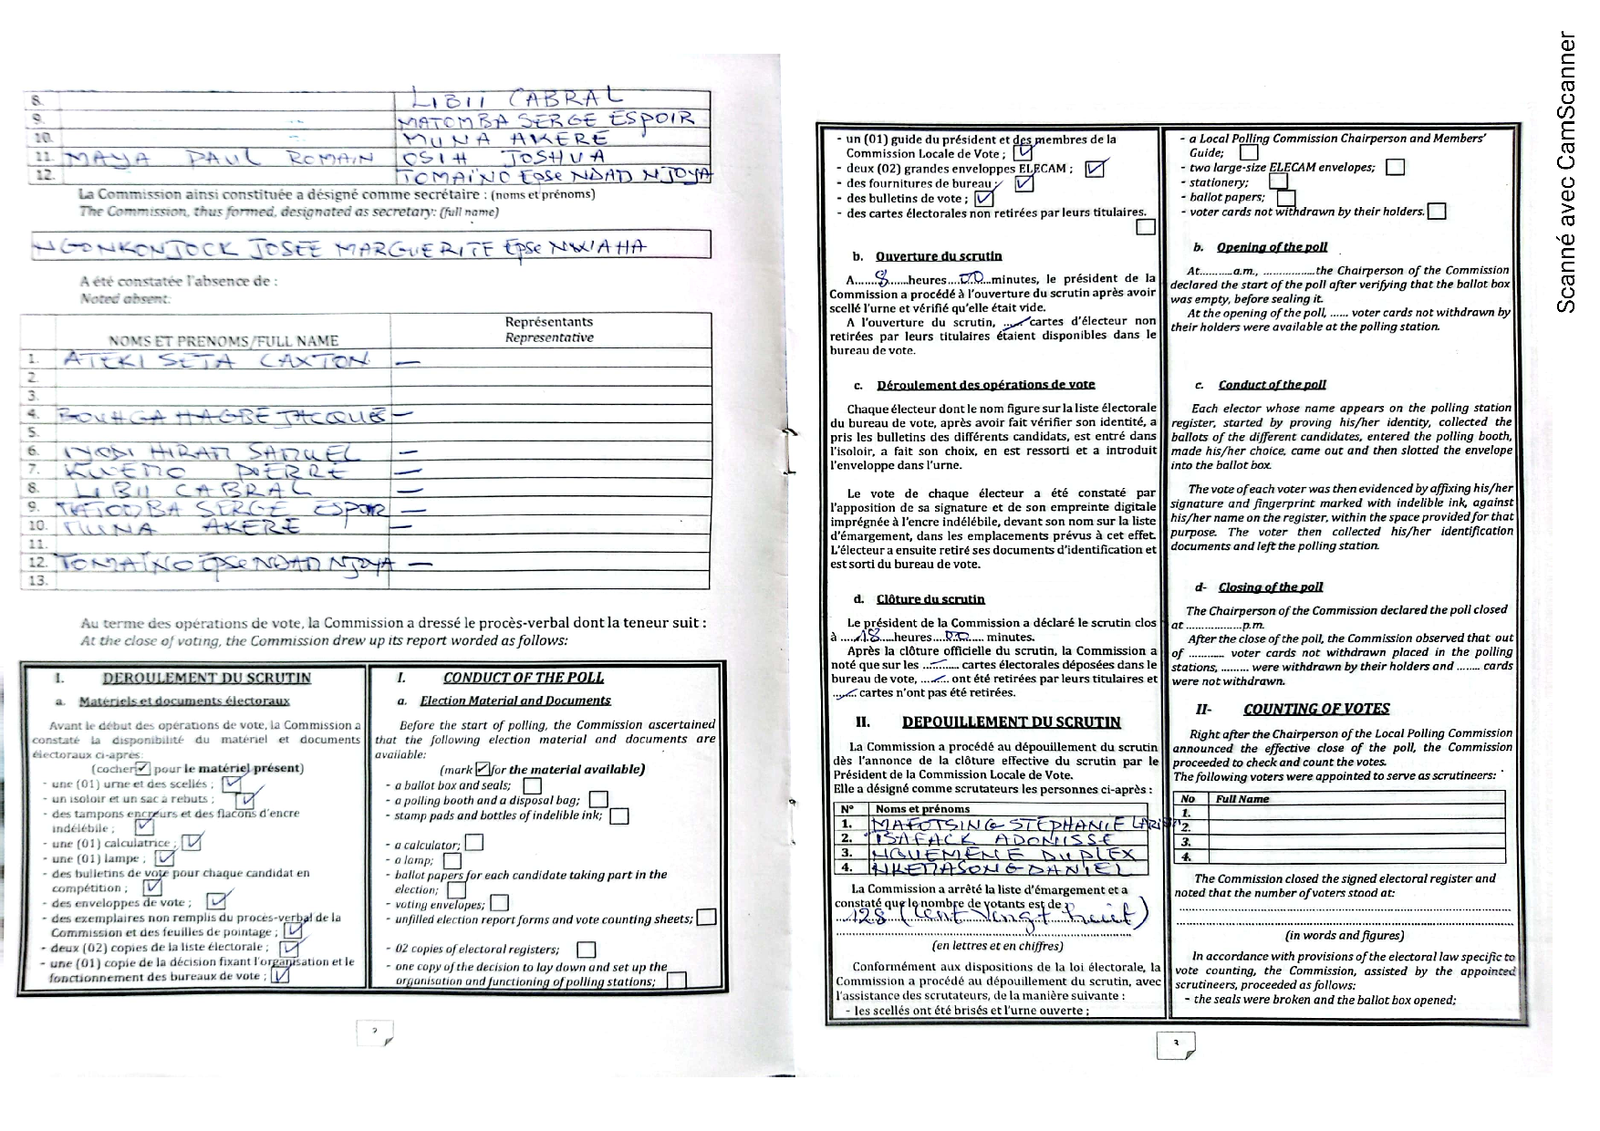 8. LIBII CABRAL
9. MATOMBA SERGE ESPOIR
10. MUNA AKERE
11. MAYA PAUL ROMAIN OSIH JOSHUA
12. TOMAÏNO Epse NDAM NJOYA
La Commission ainsi constituée a désigné comme secrétaire : (noms et prénoms)
The Commission, thus formed, designated as secretary: (full name)
NGONKONJOCK JOSEE MARGUERITE Epse NWAHA
A été constatée l'absence de :
Noted absent:
NOMS ET PRENOMS/FULL NAME
Représentants
Representative
1. ATEKI SETA CAXTON —
2.
3.
4. BOUHGA HAGBE JACQUES —
5.
6. HIRAM SAMUEL —
7. PIERRE —
8. LIBII CABRAL —
9. SERGE ESPOIR —
10. MUNA AKERE —
11.
12. TOMAÏNO Epse NDAM NJOYA —
13.
Au terme des opérations de vote, la Commission a dressé le procès-verbal dont la teneur suit :
At the close of voting, the Commission drew up its report worded as follows:
I. DEROULEMENT DU SCRUTIN
a. Matériels et documents électoraux
Avant le début des opérations de vote, la Commission a
constaté la disponibilité du matériel et documents
électoraux ci-après:
(cocher ✓ pour le matériel présent)
- une (01) urne et des scellés ; ✓
- un isoloir et un sac à rebuts ; ✓
- des tampons encreurs et des flacons d'encre
indélébile ; ✓
- une (01) calculatrice ; ✓
- une (01) lampe ; ✓
- des bulletins de vote pour chaque candidat en
compétition ; ✓
- des enveloppes de vote ; ✓
- des exemplaires non remplis du procès-verbal de la
Commission et des feuilles de pointage ; ✓
- deux (02) copies de la liste électorale ; ✓
- une (01) copie de la décision fixant l'organisation et le
fonctionnement des bureaux de vote ; ✓
I. CONDUCT OF THE POLL
a. Election Material and Documents
Before the start of polling, the Commission ascertained
that the following election material and documents are
available:
(mark ✓ for the material available)
- a ballot box and seals;
- a polling booth and a disposal bag;
- stamp pads and bottles of indelible ink;
- a calculator;
- a lamp;
- ballot papers for each candidate taking part in the
election;
- voting envelopes;
- unfilled election report forms and vote counting sheets;
- 02 copies of electoral registers;
- one copy of the decision to lay down and set up the
organisation and functioning of polling stations;
2
- un (01) guide du président et des membres de la
Commission Locale de Vote ; ✓
- deux (02) grandes enveloppes ELECAM ; ✓
- des fournitures de bureau ; ✓
- des bulletins de vote ; ✓
- des cartes électorales non retirées par leurs titulaires.
b. Ouverture du scrutin
A....8......heures...00...minutes, le président de la
Commission a procédé à l'ouverture du scrutin après avoir
scellé l'urne et vérifié qu'elle était vide.
A l'ouverture du scrutin, ....../cartes d'électeur non
retirées par leurs titulaires étaient disponibles dans le
bureau de vote.
c. Déroulement des opérations de vote
Chaque électeur dont le nom figure sur la liste électorale
du bureau de vote, après avoir fait vérifier son identité, a
pris les bulletins des différents candidats, est entré dans
l'isoloir, a fait son choix, en est ressorti et a introduit
l'enveloppe dans l'urne.
Le vote de chaque électeur a été constaté par
l'apposition de sa signature et de son empreinte digitale
imprégnée à l'encre indélébile, devant son nom sur la liste
d'émargement, dans les emplacements prévus à cet effet.
L'électeur a ensuite retiré ses documents d'identification et
est sorti du bureau de vote.
d. Clôture du scrutin
Le président de la Commission a déclaré le scrutin clos
à ....18....heures...00.... minutes.
Après la clôture officielle du scrutin, la Commission a
noté que sur les ....../.... cartes électorales déposées dans le
bureau de vote, ..../.. ont été retirées par leurs titulaires et
..../.. cartes n'ont pas été retirées.
II. DEPOUILLEMENT DU SCRUTIN
La Commission a procédé au dépouillement du scrutin
dès l'annonce de la clôture effective du scrutin par le
Président de la Commission Locale de Vote.
Elle a désigné comme scrutateurs les personnes ci-après :
N° Noms et prénoms
1. MAFOTSING STEPHANIE
2. TSAFACK ADONISSE
3. NGUEMENE DUPLEX
4. NKEMASONG DANIEL
La Commission a arrêté la liste d'émargement et a
constaté que le nombre de votants est de :
128 (Cent vingt huit)
(en lettres et en chiffres)
Conformément aux dispositions de la loi électorale, la
Commission a procédé au dépouillement du scrutin, avec
l'assistance des scrutateurs, de la manière suivante :
- les scellés ont été brisés et l'urne ouverte ;
- a Local Polling Commission Chairperson and Members'
Guide;
- two large-size ELECAM envelopes;
- stationery;
- ballot papers;
- voter cards not withdrawn by their holders.
b. Opening of the poll
At..........a.m., ................the Chairperson of the Commission
declared the start of the poll after verifying that the ballot box
was empty, before sealing it.
At the opening of the poll, ...... voter cards not withdrawn by
their holders were available at the polling station.
c. Conduct of the poll
Each elector whose name appears on the polling station
register, started by proving his/her identity, collected the
ballots of the different candidates, entered the polling booth,
made his/her choice, came out and then slotted the envelope
into the ballot box.
The vote of each voter was then evidenced by affixing his/her
signature and fingerprint marked with indelible ink, against
his/her name on the register, within the space provided for that
purpose. The voter then collected his/her identification
documents and left the polling station.
d- Closing of the poll
The Chairperson of the Commission declared the poll closed
at ..................p.m.
After the close of the poll, the Commission observed that out
of ........... voter cards not withdrawn placed in the polling
stations, ......... were withdrawn by their holders and ........ cards
were not withdrawn.
II- COUNTING OF VOTES
Right after the Chairperson of the Local Polling Commission
announced the effective close of the poll, the Commission
proceeded to check and count the votes.
The following voters were appointed to serve as scrutineers:
No Full Name
1.
2.
3.
4.
The Commission closed the signed electoral register and
noted that the number of voters stood at:
(in words and figures)
In accordance with provisions of the electoral law specific to
vote counting, the Commission, assisted by the appointed
scrutineers, proceeded as follows:
- the seals were broken and the ballot box opened;
3
Scanné avec CamScanner